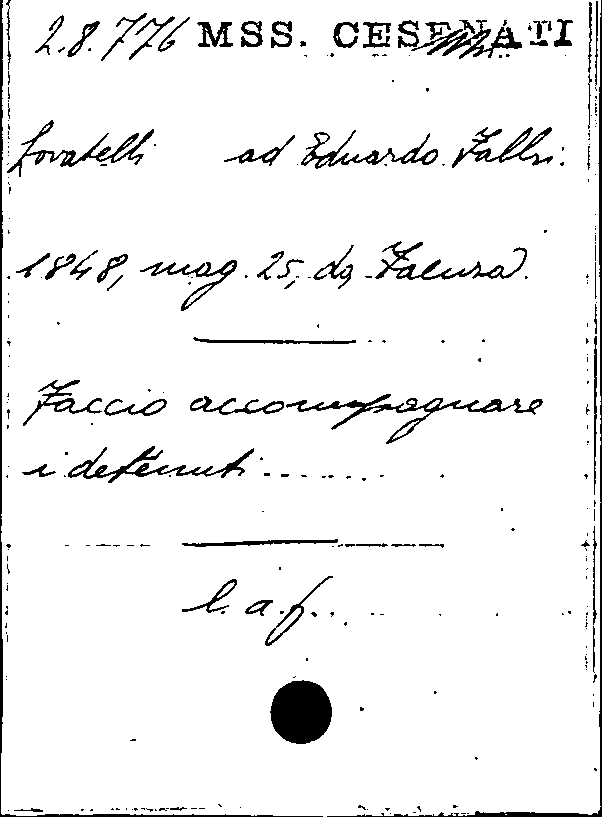 2.8.776 MSS. CESENATI
Lovatelli ad Eduardo Fabbri.
1848, mag. 25, da Faenza.
Faccio accompagnare
i detenuti.......
l. a. f...